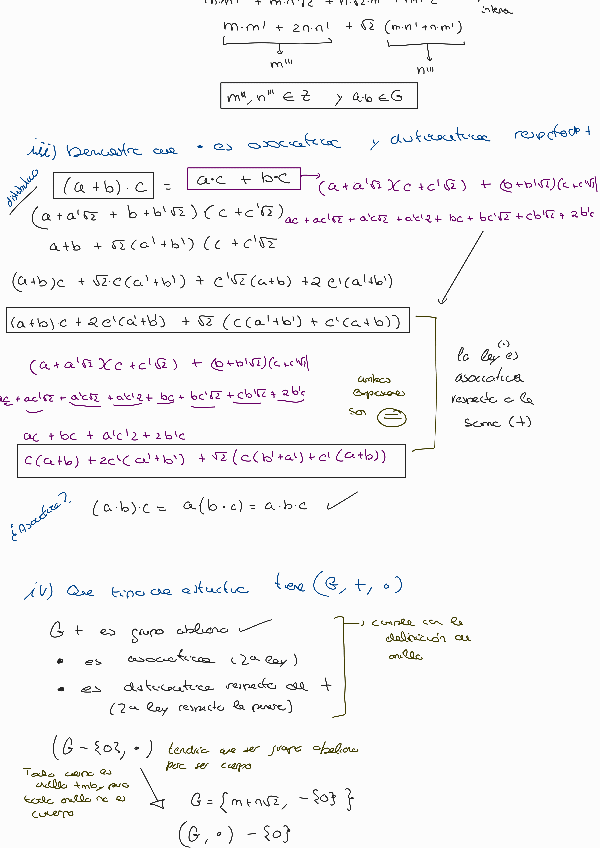 m·m' + 2n·n' + √2 (m·n' + n·m')
m''' n'''
m''', n''' ∈ Z y a·b ∈ G
iii) Demuestra que · es asociativa y distributiva respecto +
distributiva
(a+b)·c = a·c + b·c
(a+a'√2)(c+c'√2) + (b+b'√2)(c+c'√2)
(a+a'√2 + b+b'√2)(c+c'√2)
ac+ac'√2 + a'c√2 + a'c'2 + bc + bc'√2 + cb'√2 + 2b'c'
a+b + √2(a'+b')(c+c'√2
(a+b)c + √2·c(a'+b') + c'√2(a+b) + 2c'(a'+b')
(a+b)c + 2c'(a'+b') + √2(c(a'+b') + c'(a+b))
(a+a'√2)(c+c'√2) + (b+b'√2)(c+c'√2)
ac+ac'√2 + a'c√2 + a'c'2 + bc + bc'√2 + cb'√2 + 2b'c
ambas
expresiones
son =
la ley (·) es
asociativa
respecto a la
suma (+)
ac + bc + a'c'2 + 2b'c
c(a+b) + 2c'(a'+b') + √2(c(b'+a') + c'(a+b))
¿Asociativa?
(a·b)·c = a(b·c) = a·b·c ✓
iv) Que tipo de estructura tiene (G, +, ·)
G + es grupo abeliano ✓
• es asociativa (2ª ley)
• es distributiva respecto del +
(2ª ley respecto la primera)
cumple con la
definición de
anillo
(G-{0}, ·) tendría que ser grupo abeliano
para ser cuerpo
Todo cuerpo es
anillo tmb, pero
todo anillo no es
cuerpo
G = {m+n√2, -{0}}
(G, ·) - {0}